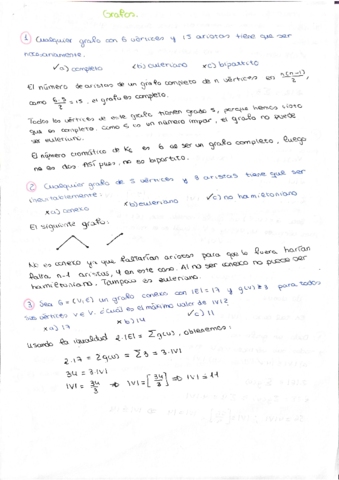 Grafos.
1 Cualquier grafo con 6 vértices y 15 aristas tiene que ser
necesariamente:
✓a) completo xb) euleriano xc) bipartito
El número de aristas de un grafo completo de n vértices es n(n-1)/2,
como 6·5/2 = 15, el grafo es completo.
Todos los vértices de este grafo tienen grado 5, porque hemos visto
que es completo, como 5 es un número impar, el grafo no puede
ser euleriano.
El número cromático de K6 es 6 al ser un grafo completo, luego
no es dos. Así pues, no es bipartito.
2 Cualquier grafo de 5 vértices y 3 aristas tiene que ser
inevitablemente:
xa) conexo xb) euleriano ✓c) no hamiltoniano
El siguiente grafo:
No es conexo ya que faltarían aristas para que lo fuera harían
falta n-1 aristas, 4 en este caso. Al no ser conexo no puede ser
hamiltoniano. Tampoco es euleriano.
3 Sea G = (V,E) un grafo conexo con |E| = 17 y g(v) ≥ 3 para todos
sus vértices v ∈ V. ¿Cuál es el máximo valor de |V|?
xa) 17 xb) 14 ✓c) 11
Usando la igualdad 2·|E| = Σg(v), obtenemos:
2·17 = Σg(v) = Σ3 = 3·|V|
34 = 3·|V|
|V| = 34/3 ⇒ |V| = [34/3] ⇒ |V| = 11